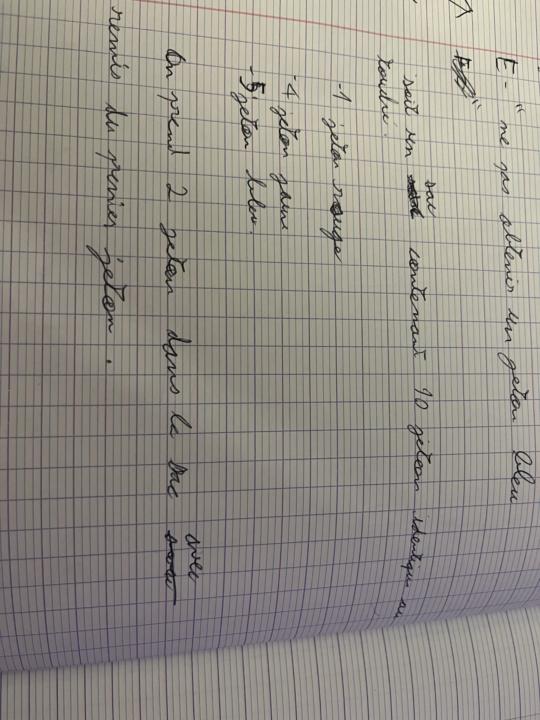 E - " ne pas obtenir un jeton bleu
"
soit un sac contenant 10 jeton identique au
touché.
- 1 jeton rouge
- 4 jeton jaune
- 5 jeton bleu.
On prend 2 jeton dans le sac avec
remis du premier jeton.